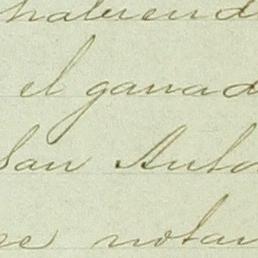 habiend
el ganad
San Anto
se notar